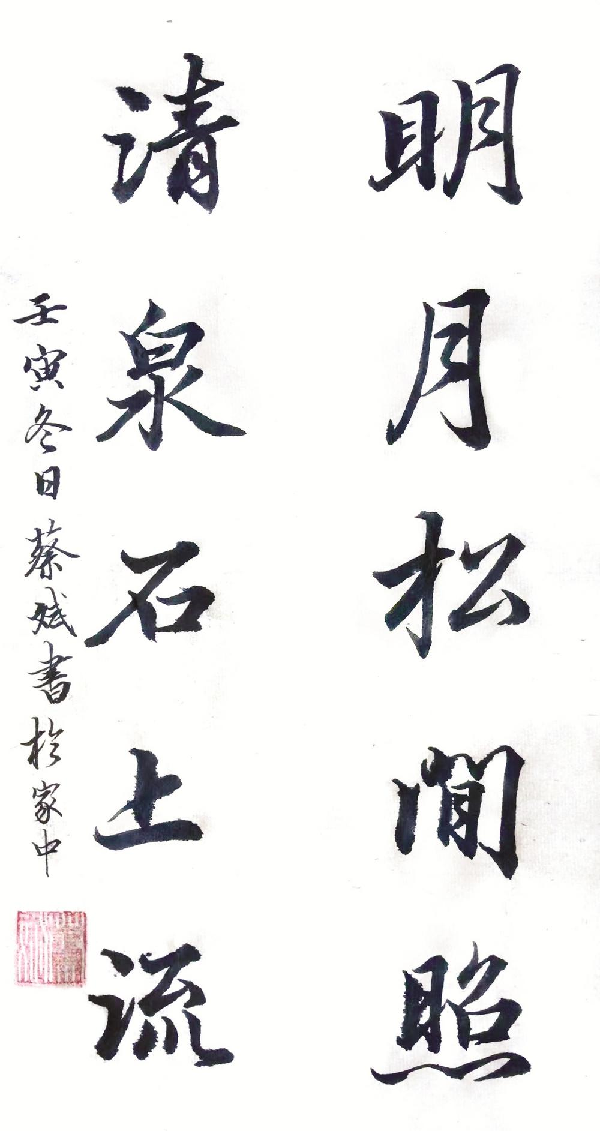 明月松間照
清泉石上流
壬寅冬日蔡斌書於家中